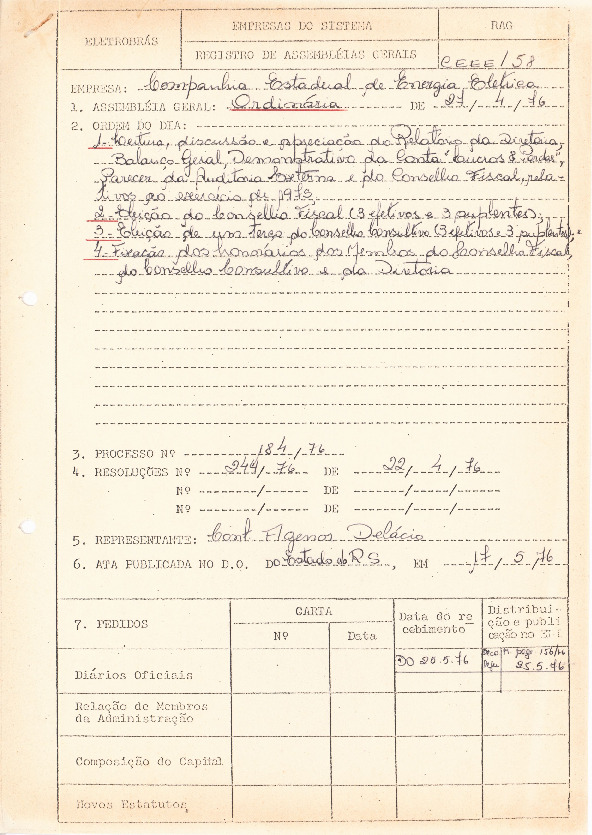 ELETROBRÁS
EMPRESAS DO SISTEMA
RAG
REGISTRO DE ASSEMBLÉIAS GERAIS
CEEE/58
EMPRESA: Companhia Estadual de Energia Elétrica
1. ASSEMBLÉIA GERAL: Ordinária DE 27/4/76
2. ORDEM DO DIA:
1- Leitura, discussão e apreciação do Relatório da Diretoria,
Balanço Geral, Demonstrativo da Conta "Lucros & Perdas",
Parecer da Auditoria Externa e do Conselho Fiscal, rela-
tivos ao exercício de 1975
2- Eleição do Conselho Fiscal (3 efetivos e 3 suplentes);
3- Eleição de um terço do Conselho Consultivo (3 efetivos e 3 suplentes); e
4- Fixação dos honorários dos Membros do Conselho Fiscal,
do Conselho Consultivo e da Diretoria
3. PROCESSO Nº 184/76
4. RESOLUÇÕES Nº 244/76 DE 22/4/76
Nº / DE / /
Nº / DE / /
5. REPRESENTANTE: Cont. Agenor Delácio
6. ATA PUBLICADA NO D.O. DO Estado do RS, EM 17/5/76
7. PEDIDOS
CARTA
Nº
Data
Data do re
cebimento
Distribui-
ção e publi
cação no
Diários Oficiais
DO 20.5.76
pag 156/76
25.5.76
Relação de Membros
da Administração
Composição do Capital
Novos Estatutos